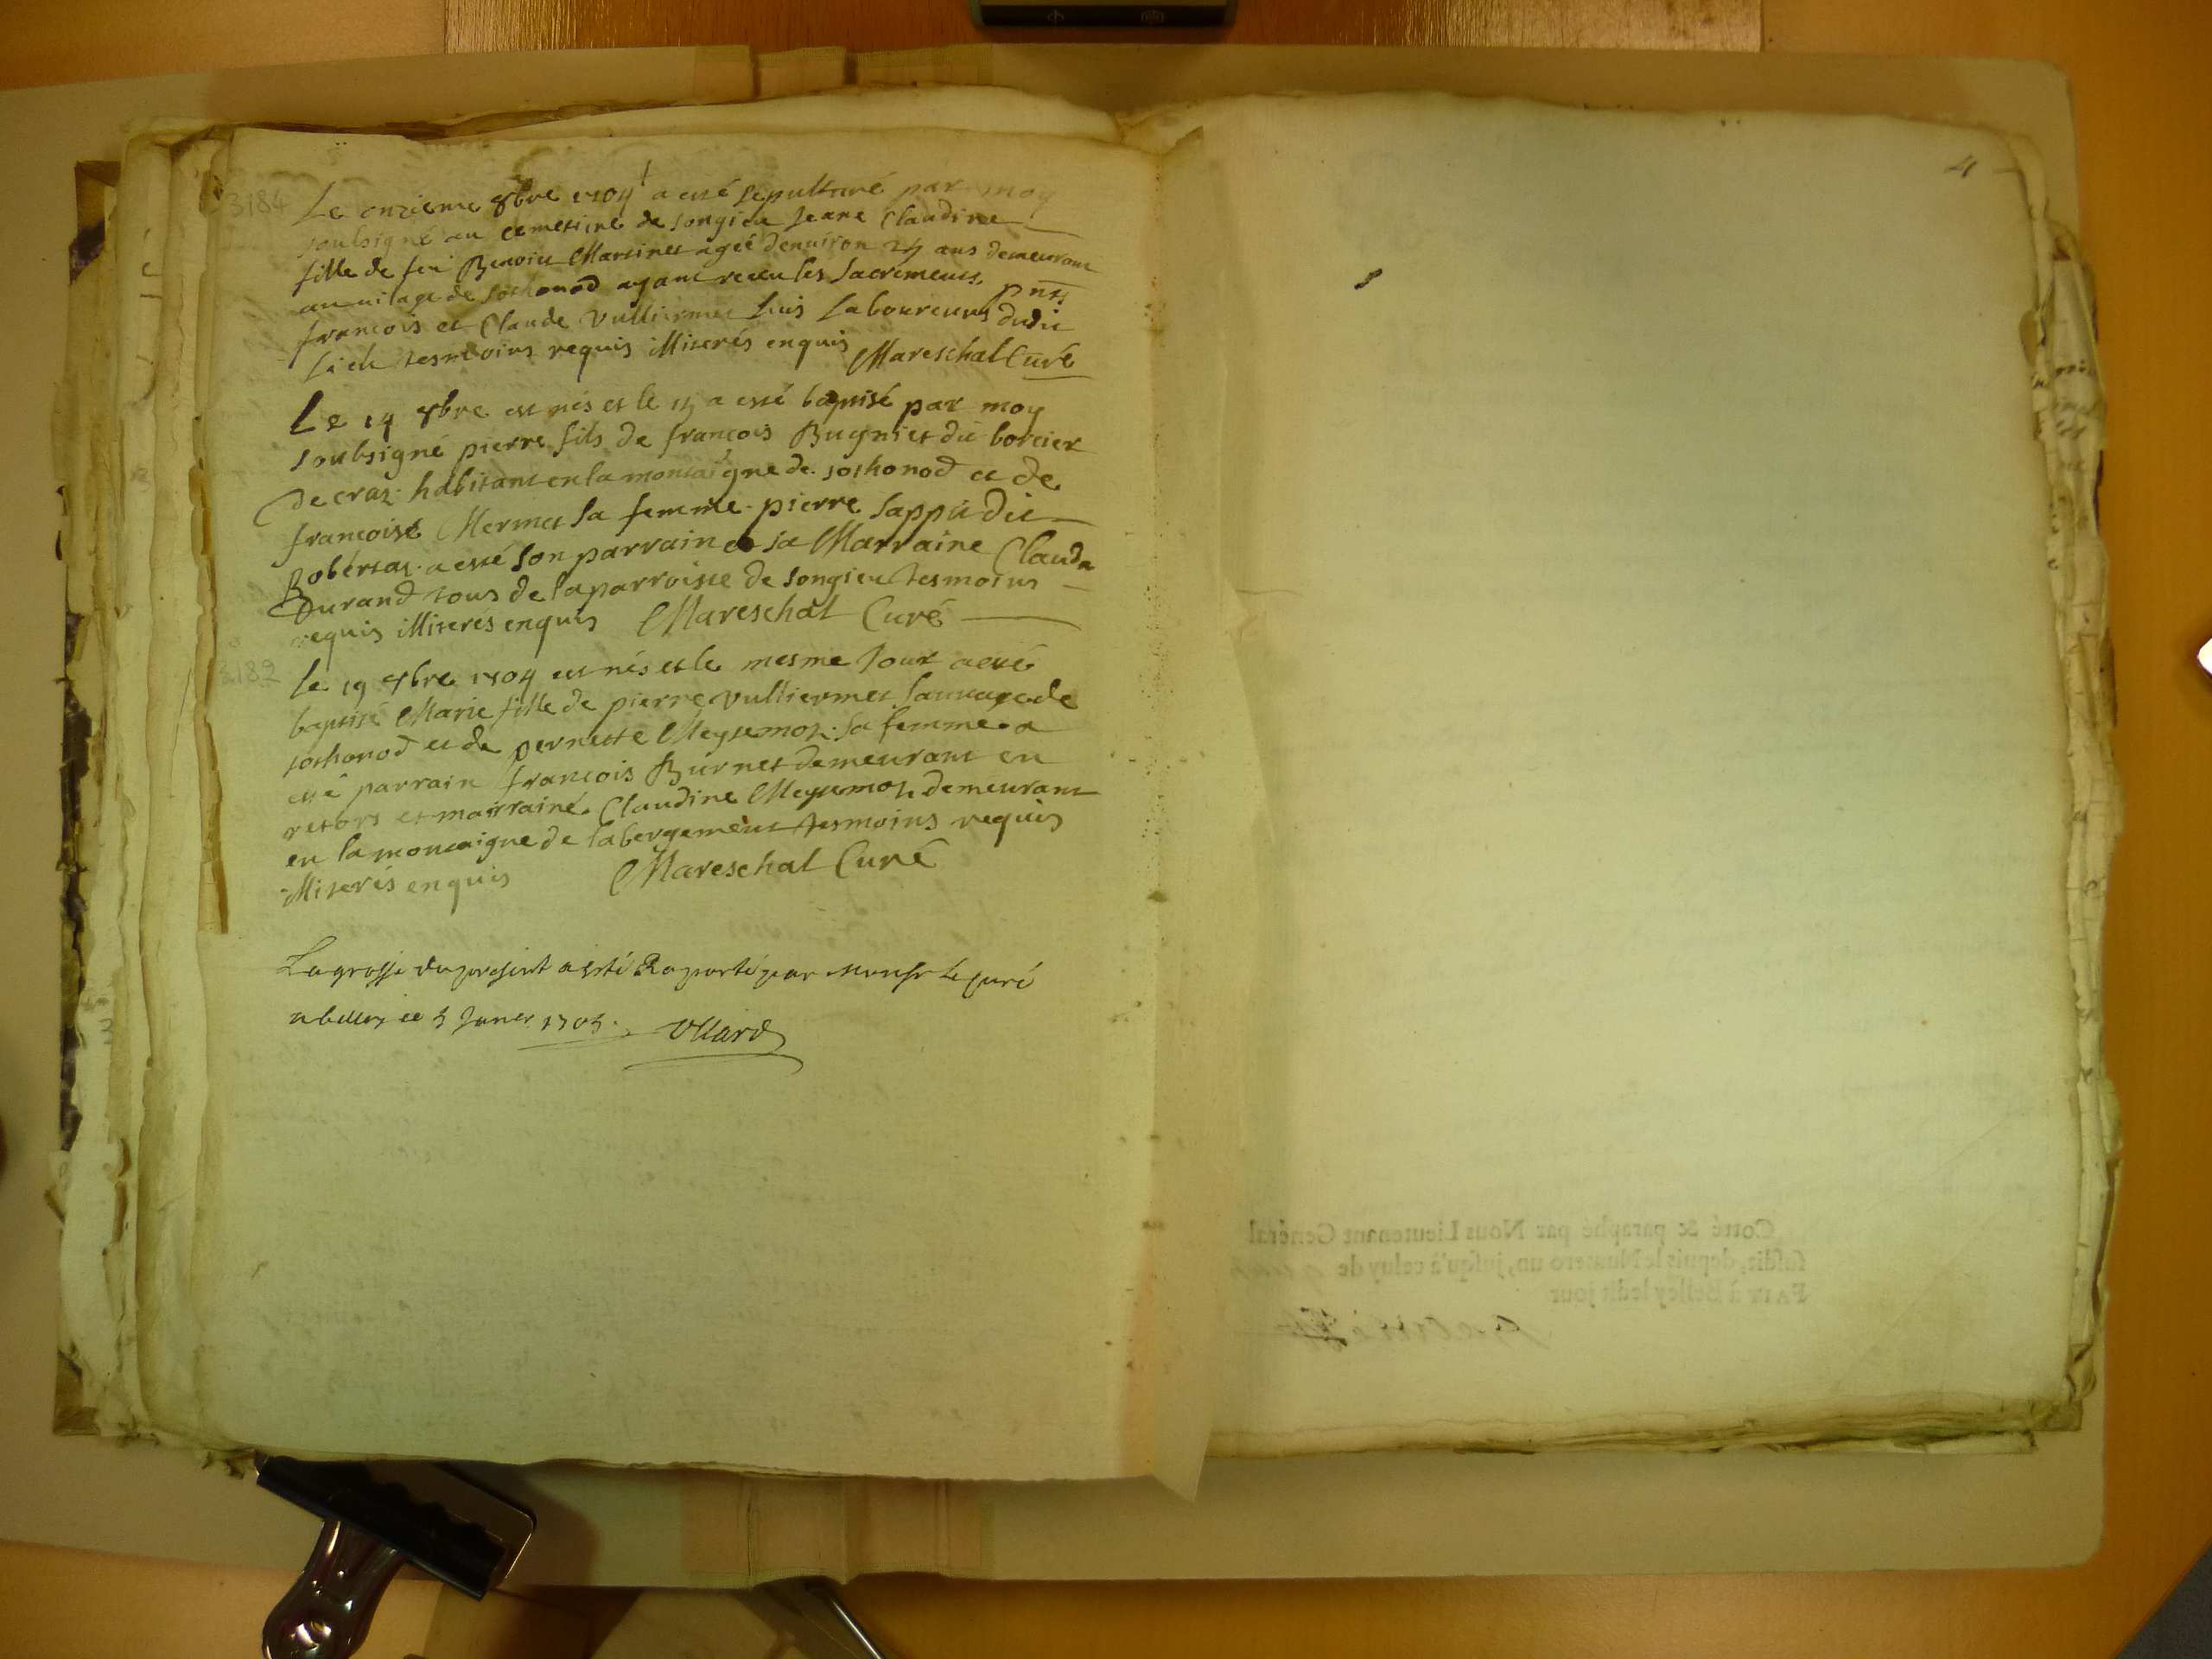 3184
Le onzieme 8bre 1704 a esté sepulturé par moy
soubsigné au cemetiere de songieu Jeane Claudine
fille de feu Benoict Martinet agée denuiron 25 ans demeurant
au uilage de sothonod ayant receu les sacrements, pnts
francois et Claude Vulliermet laboureurs dudit
lieu tesmoins requis Miterés enquis Mareschal Curé
Le 14 8bre est nés et le 15 a esté baptisé par moy
soubsigné pierre fils de francois Bugniet dit borcier
de craz habitant en la montaigne de sothonod et de
francoise Mermet sa femme pierre sappit dit
Robertaz a esté son parrain et sa Marraine Clauda
Durand tous de la parroisse de songieu tesmoins
requis illiterés enquis Mareschal Curé
3182
le 19 8bre 1704 est nés et le mesme Jour a esté
baptisé Marie fille de pierre Vulliermet sauuage de
sothonod et de pernette Meysemoz sa femme a
esté parrain francois Burnet demeurant en
retors et marraine Claudine Meysemoz demeurant
en la montaigne de labergement tesmoins requis
illiterés enquis Mareschal Curé
La grosse du present a esté Raporté par monsr le curé
a belley ce 5 Janer 1705. Ollard
4
Cotté & paraphé par Nous Lieutenant Général
susdit, depuis le Numero un, jusqu'à celuy de
FAIT à Belley ledit jour